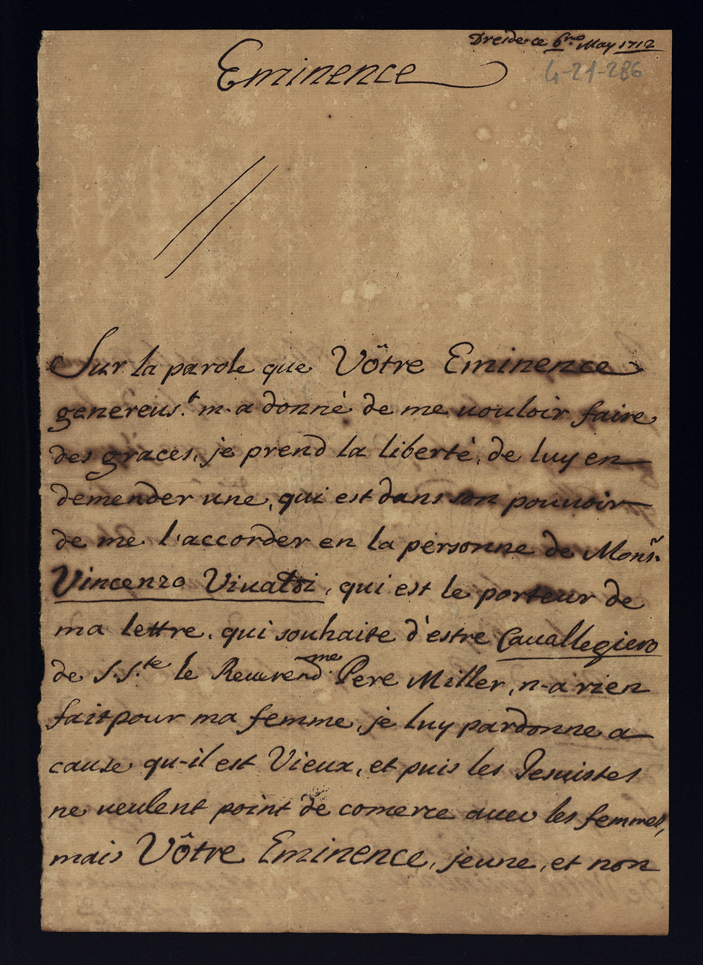 Dresde ce 6me May 1712
4-21-286
Eminence
Sur la parole que Vôtre Eminence
genereus.t m-a donné de me vouloir faire
des graces, je prend la liberté, de luy en
demender une, qui est dans son pouvoir
de me l'accorder en la personne de Monsr.
Vincenzo Vivaldi, qui est le porteur de
ma lettre, qui souhaite d'estre Cavallegiero
de S.S.te le Reverendme Pere Miller, n-a rien
fait pour ma femme, je luy pardonne a
cause qu-il est Vieux, et puis les Jesuistes
ne veulent point de comerce avec les femmes,
mais Vôtre Eminence, jeune, et non